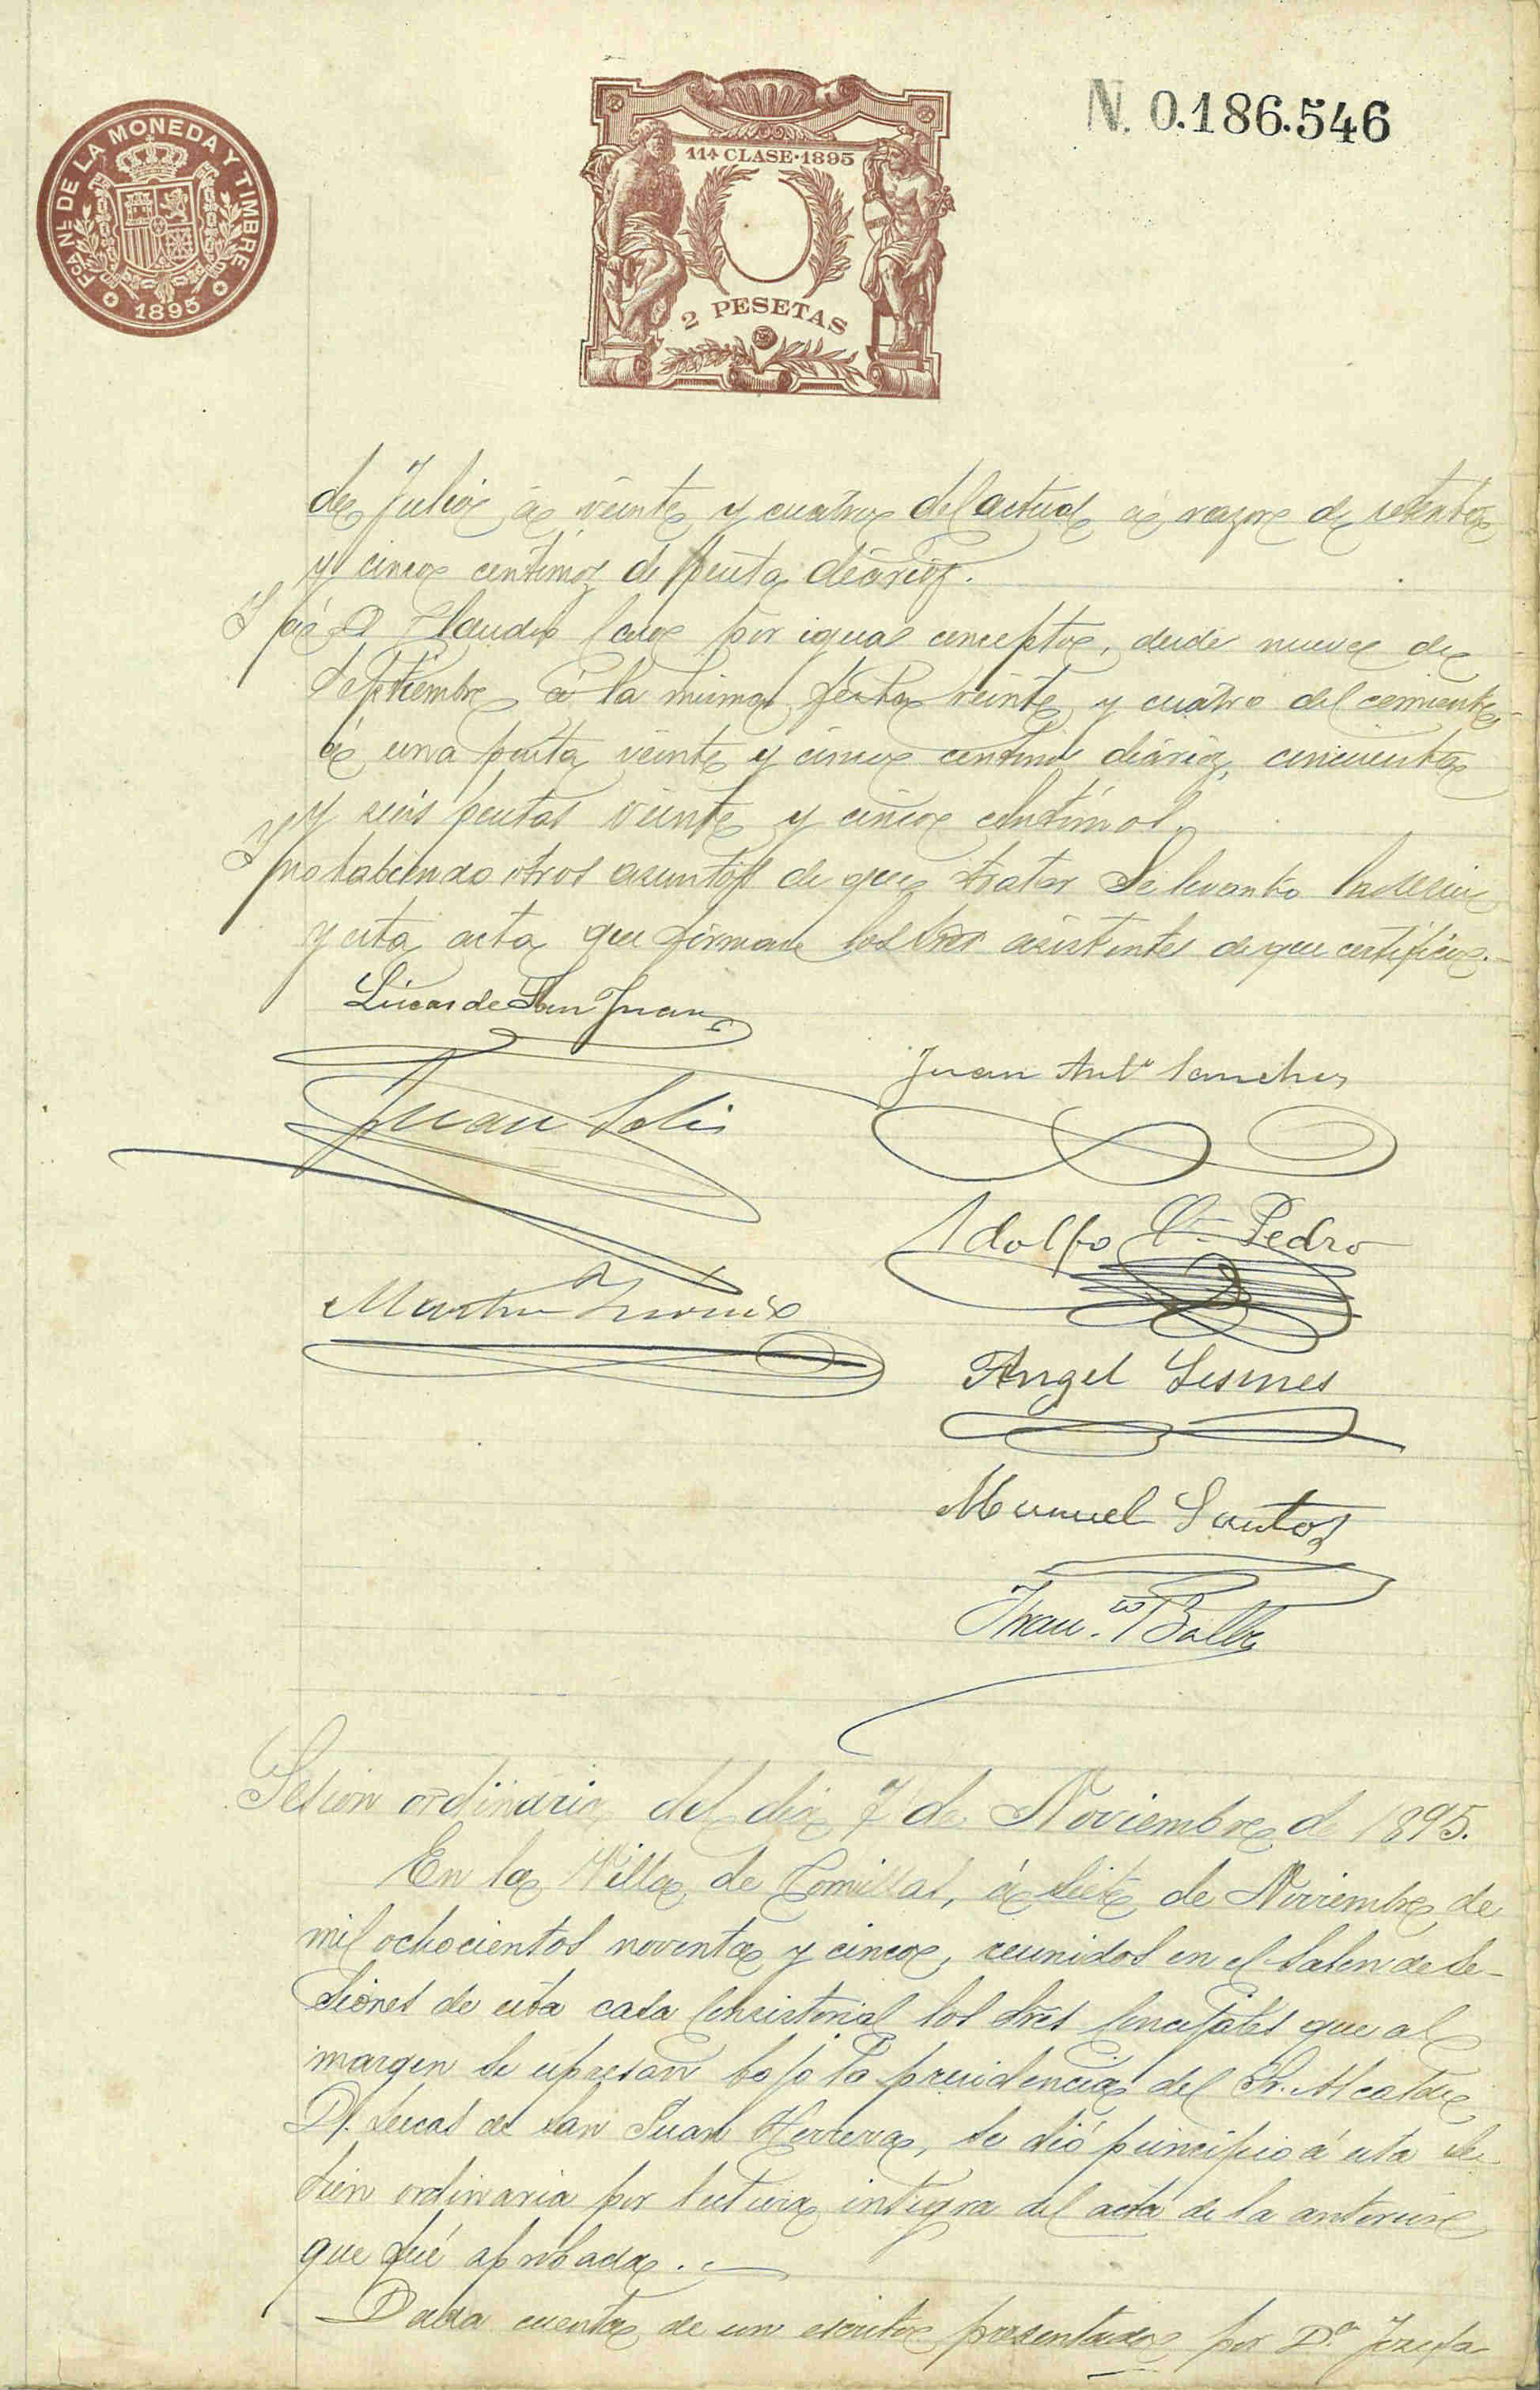 FCA NL DE LA MONEDA Y TIMBRE
1895
11ª CLASE·1895
2 PESETAS
N. 0.186.546
de Julio á veinte y cuatro del actual á razon de setenta
y cinco centimos de peseta diarios.
Y á D. Claudio Caso por igual concepto, desde nueve de
Septiembre á la misma fecha veinte y cuatro del corriente
á una peseta veinte y cinco centimos diarios, cincuenta
y seis pesetas veinte y cinco centimos.
Y no habiendo otros asuntos de que tratar Se levantó la sesion
y esta acta que firman los Sres asistentes de que certifico.
Lucas de San Juan
Juan Antº Sanchez
Juan Solis
Adolfo Pedro
Martin
Angel Lesmes
Manuel Santos
Fran.co Balbs
Sesion ordinaria del dia 7 de Noviembre de 1895.
En la Villa de Comillas, á siete de Noviembre de
mil ochocientos noventa y cinco, reunidos en el Salon de Se-
siones de esta casa Consistorial los Sres Concejales que al
margen se espresan bajo la presidencia del Sr. Alcalde
D. Lucas de San Juan Herrera, se dió principio á esta se-
sion ordinaria por lectura integra del acta de la anterior
que fué aprobada.
Dada cuenta de un escrito presentado por D.ª Josefa